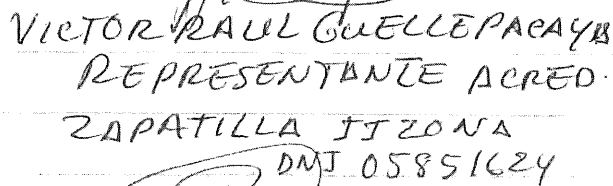 VICTOR RAUL GUELLEPACAYA
REPRESENTANTE ACRED.
ZAPATILLA II ZONA
DNI 05851624